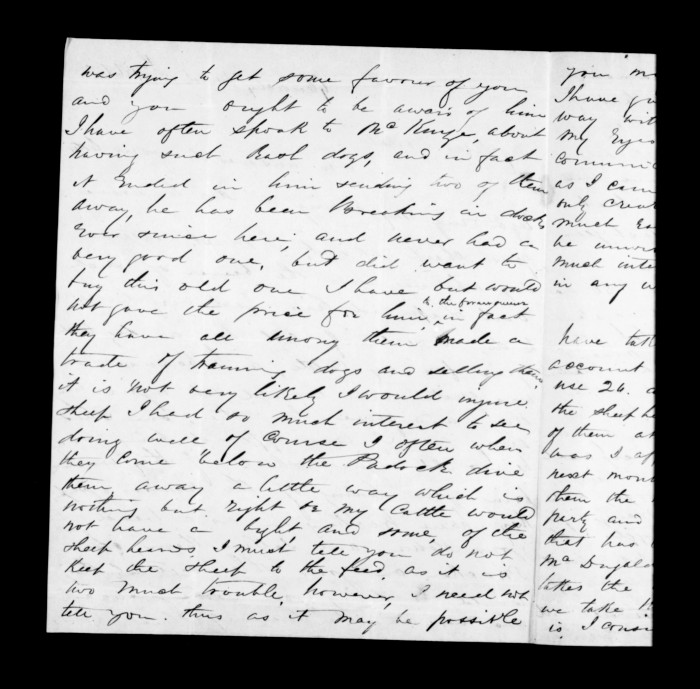 was trying to get some favour of you
and you ought to be aware of him
I have often spook to Mc about
having such bad dogs, and in fact
it Ended in him sending two of them
away, he has been Breaking in dogs
Ever since here; and never had a
very good one, but did want to
buy this old one I have but would
not gave the price for him, in fact
to the former owner
they have all among them made a
trade of training dogs and selling them
it is not very likely I would injure
sheep I had so much interest to see
doing well of course I often when
they come below the Padock drive
them away a little way which is
nothing but right or my Cattle would
not have a bight, and some, of the
sheep heards I must tell you do not
Keep the sheep to the feed as it is
two much trouble, however, I need not
tell you. this as it may be possible
you
I have
way
my Eyes
as I
only
much
be
much
in any
have
account
use 26.
the sheep
of them
was I
next
them the
party and
that has
Mc
takes the
we take
is I